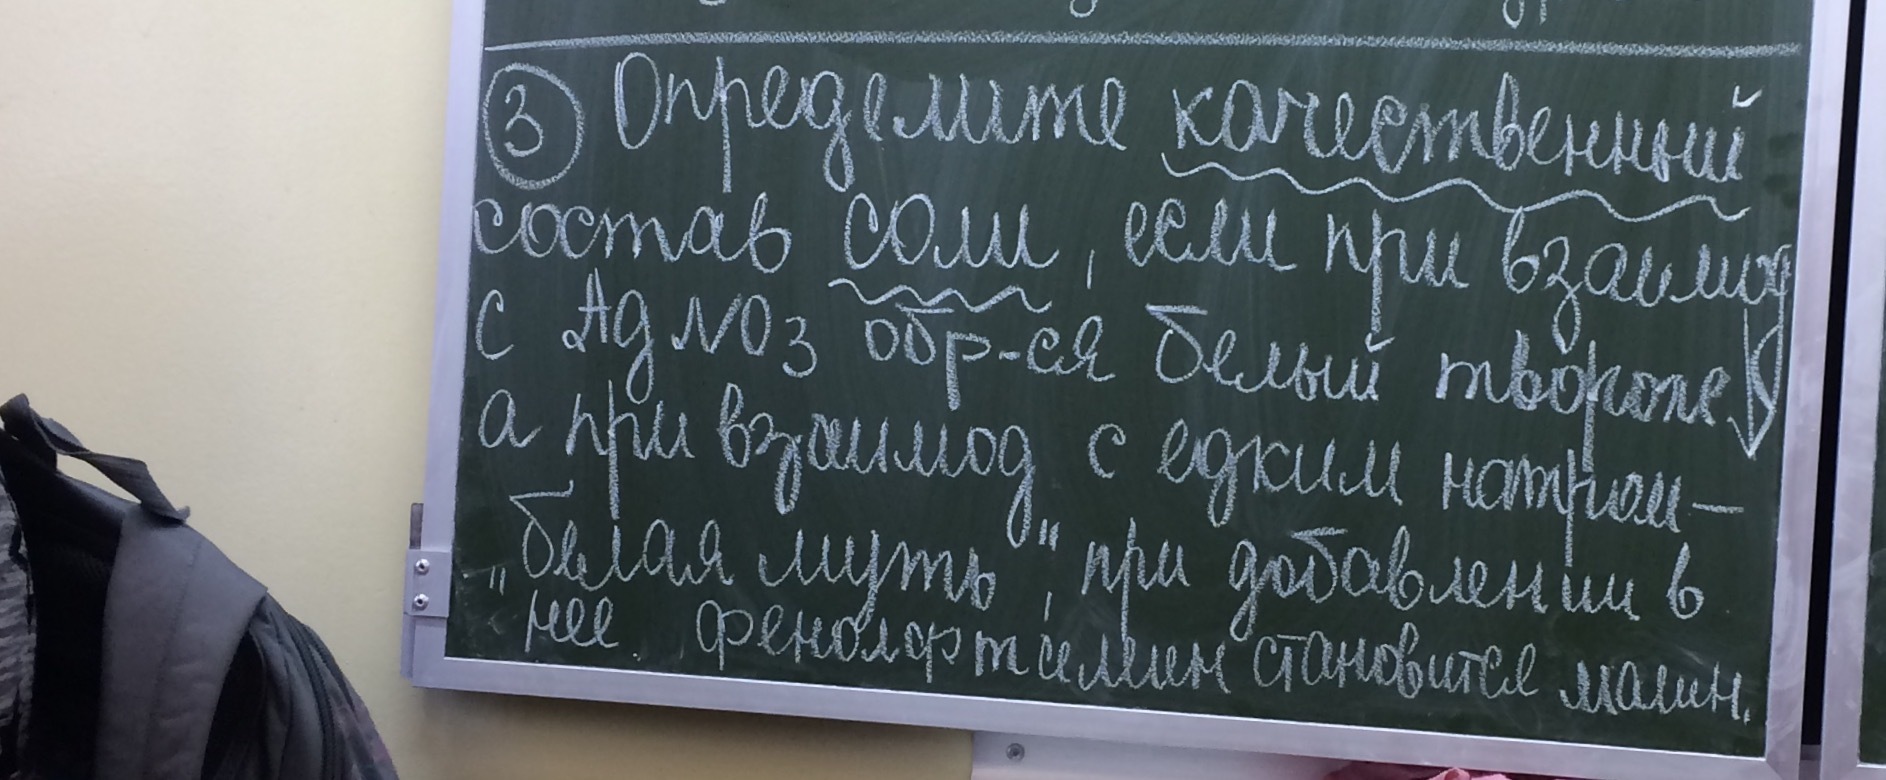 ③ Определите качественный
состав соли, если при взаимод
с AgNO3 обр-ся белый творож. ↓
а при взаимод с едким натром —
„белая муть", при добавлении в
нее фенолфталеин становится малин.